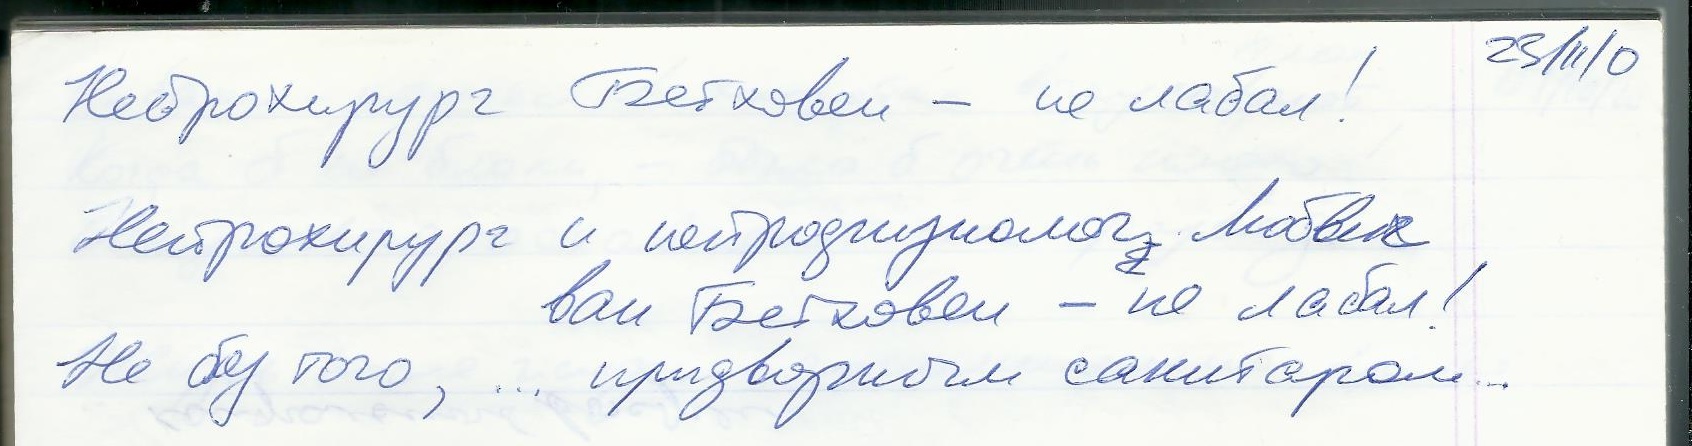 23/11/0
Нейрохирург Бетховен – не лабал!
Нейрохирург и нейрофизиолог Людвиг
ван Бетховен – не лабал!
Не без того, ... придворным санитаром...